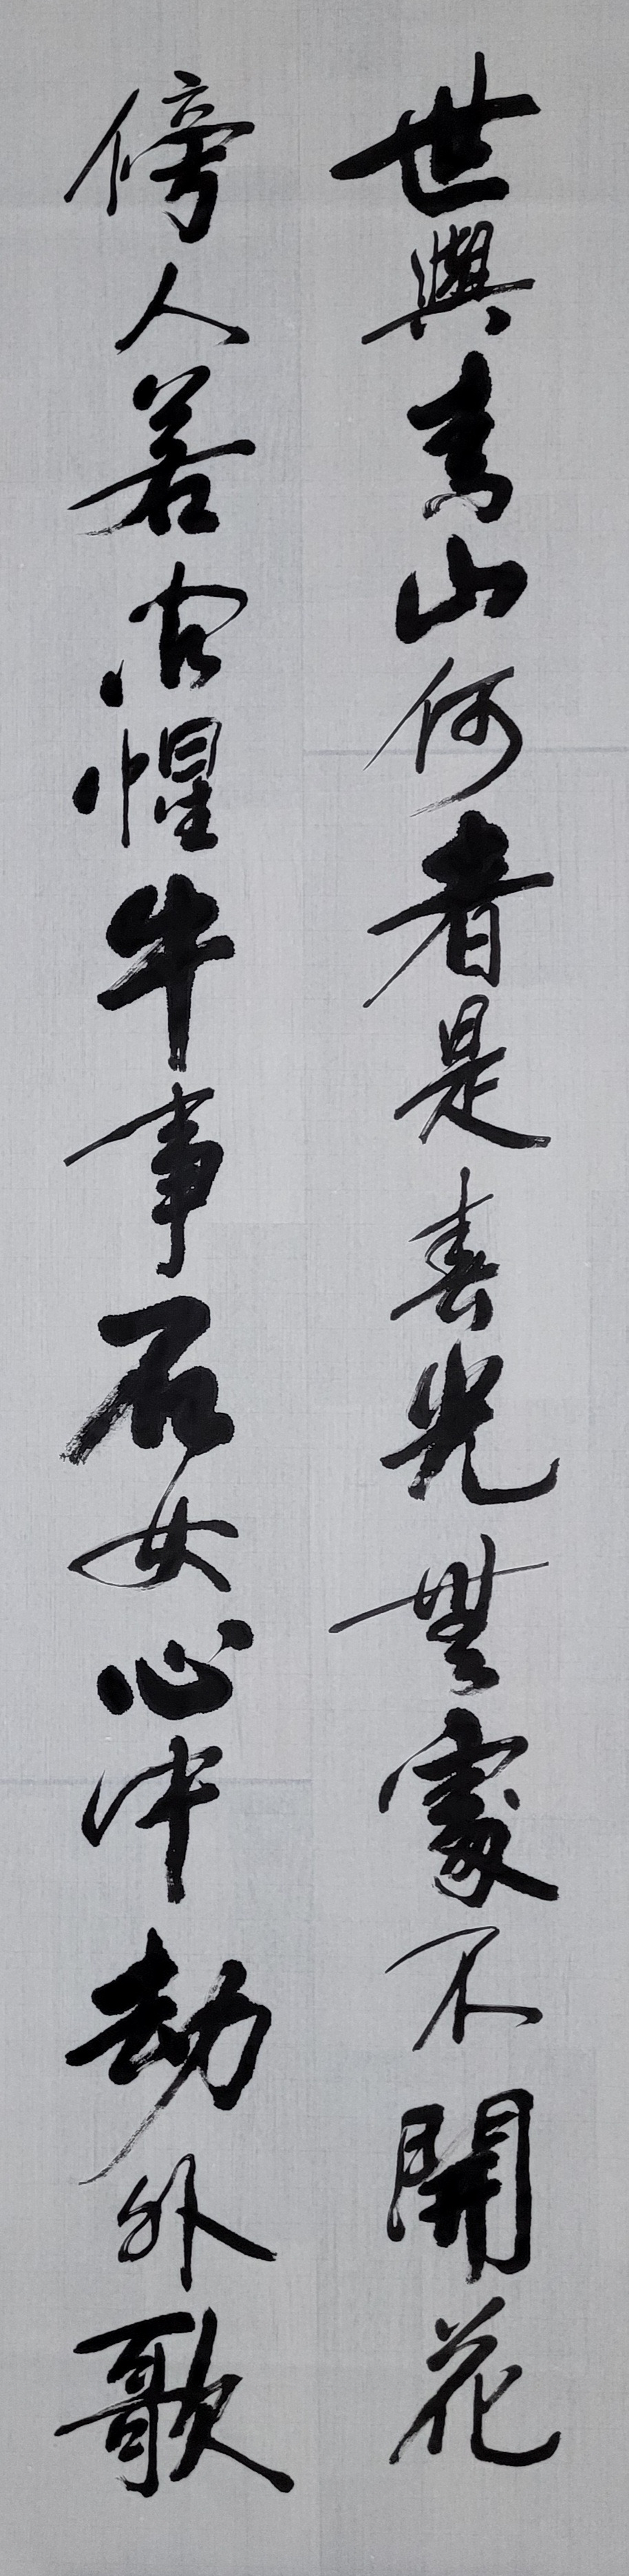 世與青山何者是春光無處不開花
傍人若问惺牛事石女心中劫外歌